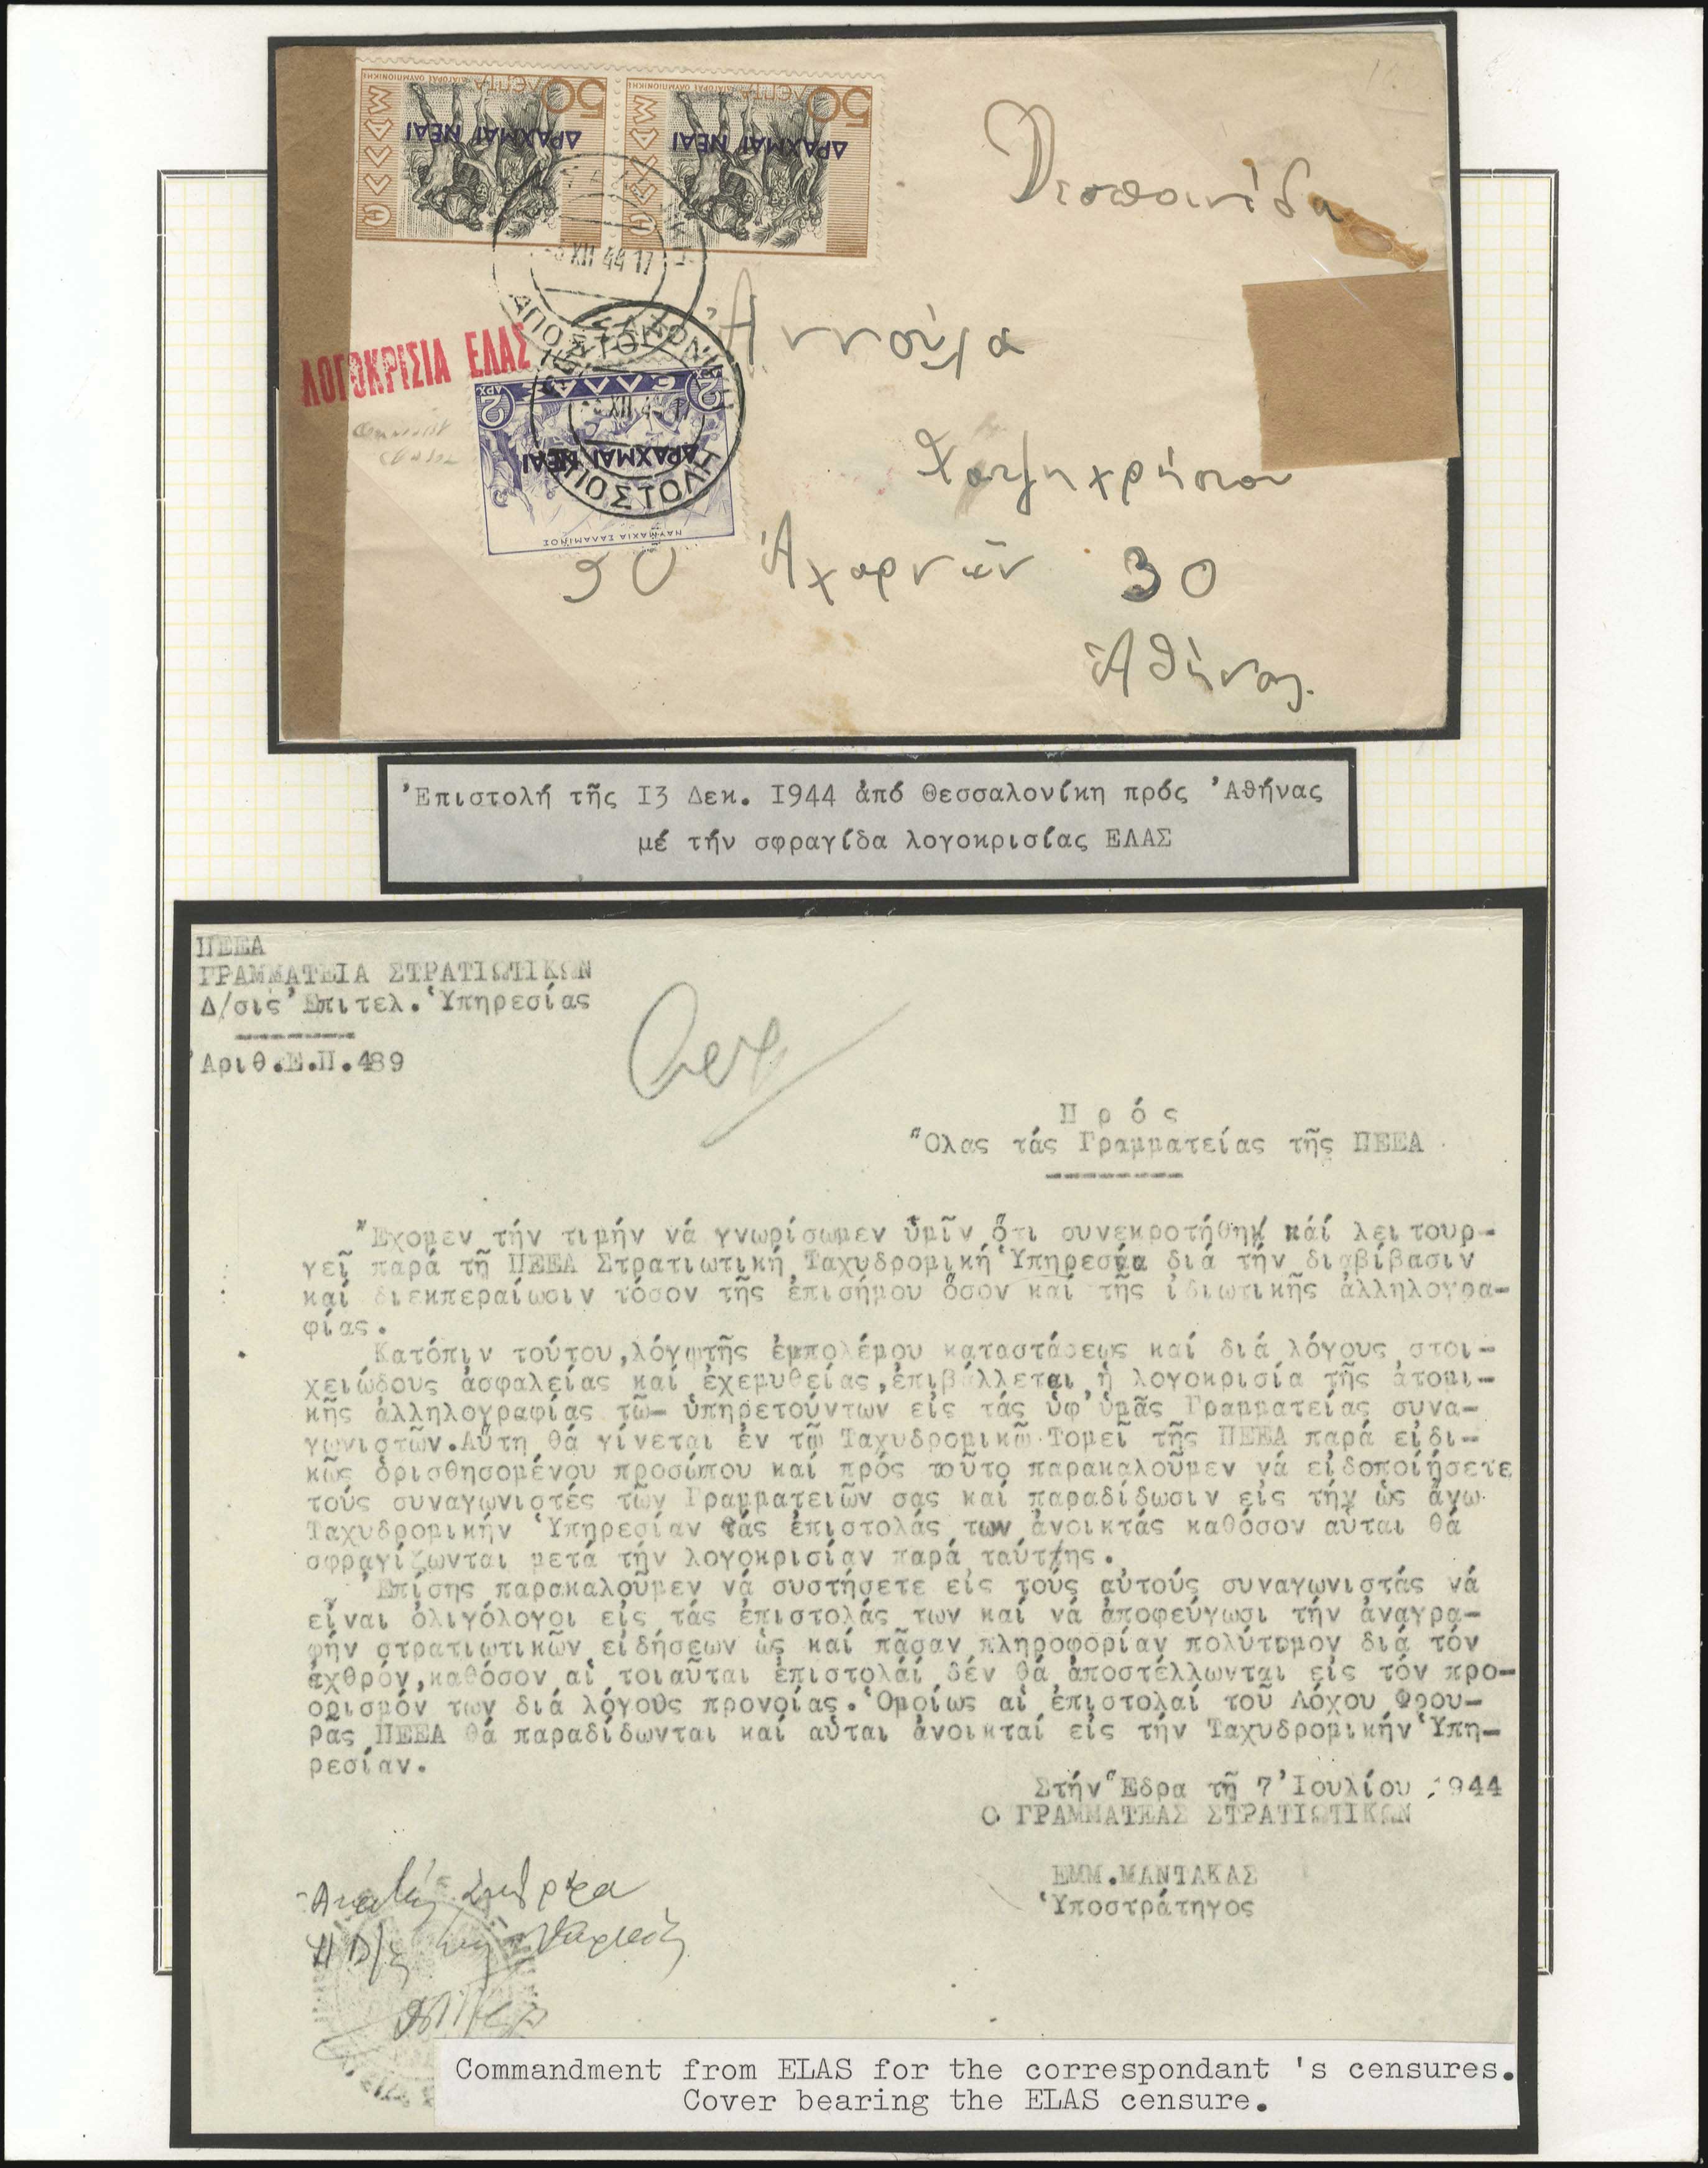 50 ΛΕΠΤΑ
ΕΛΛΑΣ
ΔΡΑΧΜΑΙ ΝΕΑΙ
50 ΛΕΠΤΑ
ΕΛΛΑΣ
ΔΡΑΧΜΑΙ ΝΕΑΙ
XII 44 17
ΛΟΓΟΚΡΙΣΙΑ ΕΛΑΣ
ΘΕΣΣΑΛΟΝΙΚΗ
ΑΠΟΣΤΟΛΗ
2 ΕΛΛΑΣ 2
ΔΡΑΧΜΑΙ ΝΕΑΙ
ΝΑΥΜΑΧΙΑ ΣΑΛΑΜΙΝΟΣ
Δεσποινίδα
Ἀννούλα
Χατζηχρήστου
30 Ἀχαρνῶν 30
Ἀθήνας.
Ἐπιστολή τῆς 13 Δεκ. 1944 ἀπό Θεσσαλονίκη πρός Ἀθήνας
μέ τήν σφραγίδα λογοκρισίας ΕΛΑΣ
ΠΕΕΑ
ΓΡΑΜΜΑΤΕΙΑ ΣΤΡΑΤΙΩΤΙΚΩΝ
Δ/σις Ἐπιτελ. Ὑπηρεσίας
Ἀριθ.Ε.Π.489
Π ρ ό ς
Ὅλας τάς Γραμματείας τῆς ΠΕΕΑ
Ἔχομεν τήν τιμήν νά γνωρίσωμεν ὑμῖν ὅτι συνεκροτήθη καί λειτουρ-
γεῖ παρά τῇ ΠΕΕΑ Στρατιωτική Ταχυδρομική Ὑπηρεσία διά τήν διαβίβασιν
καί διεκπεραίωσιν τόσον τῆς ἐπισήμου ὅσον καί τῆς ἰδιωτικῆς ἀλληλογρα-
φίας.
Κατόπιν τούτου,λόγῳ τῆς ἐμπολέμου καταστάσεως καί διά λόγους στοι-
χειώδους ἀσφαλείας καί ἐχεμυθείας,ἐπιβάλλεται ἡ λογοκρισία τῆς ἀτομι-
κῆς ἀλληλογραφίας τῶ- ὑπηρετούντων εἰς τάς ὑφ'ὑμᾶς Γραμματείας συνα-
γωνιστῶν.Αὕτη θά γίνεται ἐν τῷ Ταχυδρομικῷ Τομεῖ τῆς ΠΕΕΑ παρά εἰδι-
κῶς ὁρισθησομένου προσώπου καί πρός τοῦτο παρακαλοῦμεν νά εἰδοποιήσετε
τούς συναγωνιστές τῶν Γραμματειῶν σας καί παραδίδωσιν εἰς τήν ὡς ἄνω
Ταχυδρομικήν Ὑπηρεσίαν τάς ἐπιστολάς των ἀνοικτάς καθόσον αὗται θά
σφραγίζωνται μετά τήν λογοκρισίαν παρά ταύτης.
Ἐπίσης παρακαλοῦμεν νά συστήσετε εἰς τούς αὐτούς συναγωνιστάς νά
εἶναι ὀλιγόλογοι εἰς τάς ἐπιστολάς των καί νά ἀποφεύγωσι τήν ἀναγρα-
φήν στρατιωτικῶν εἰδήσεων ὡς καί πᾶσαν πληροφορίαν πολύτιμον διά τόν
ἐχθρόν,καθόσον αἱ τοιαῦται ἐπιστολαί δέν θά ἀποστέλλωνται εἰς τόν προ-
ορισμόν των διά λόγους προνοίας. Ὁμοίως αἱ ἐπιστολαί τοῦ Λόχου Φρου-
ρᾶς ΠΕΕΑ θά παραδίδωνται καί αὗται ἀνοικταί εἰς τήν Ταχυδρομικήν Ὑπη-
ρεσίαν.
Στήν Ἕδρα τῇ 7 Ἰουλίου 1944
Ο ΓΡΑΜΜΑΤΕΑΣ ΣΤΡΑΤΙΩΤΙΚΩΝ
ΕΜΜ.ΜΑΝΤΑΚΑΣ
Ὑποστράτηγος
Commandment from ELAS for the correspondant 's censures.
Cover bearing the ELAS censure.